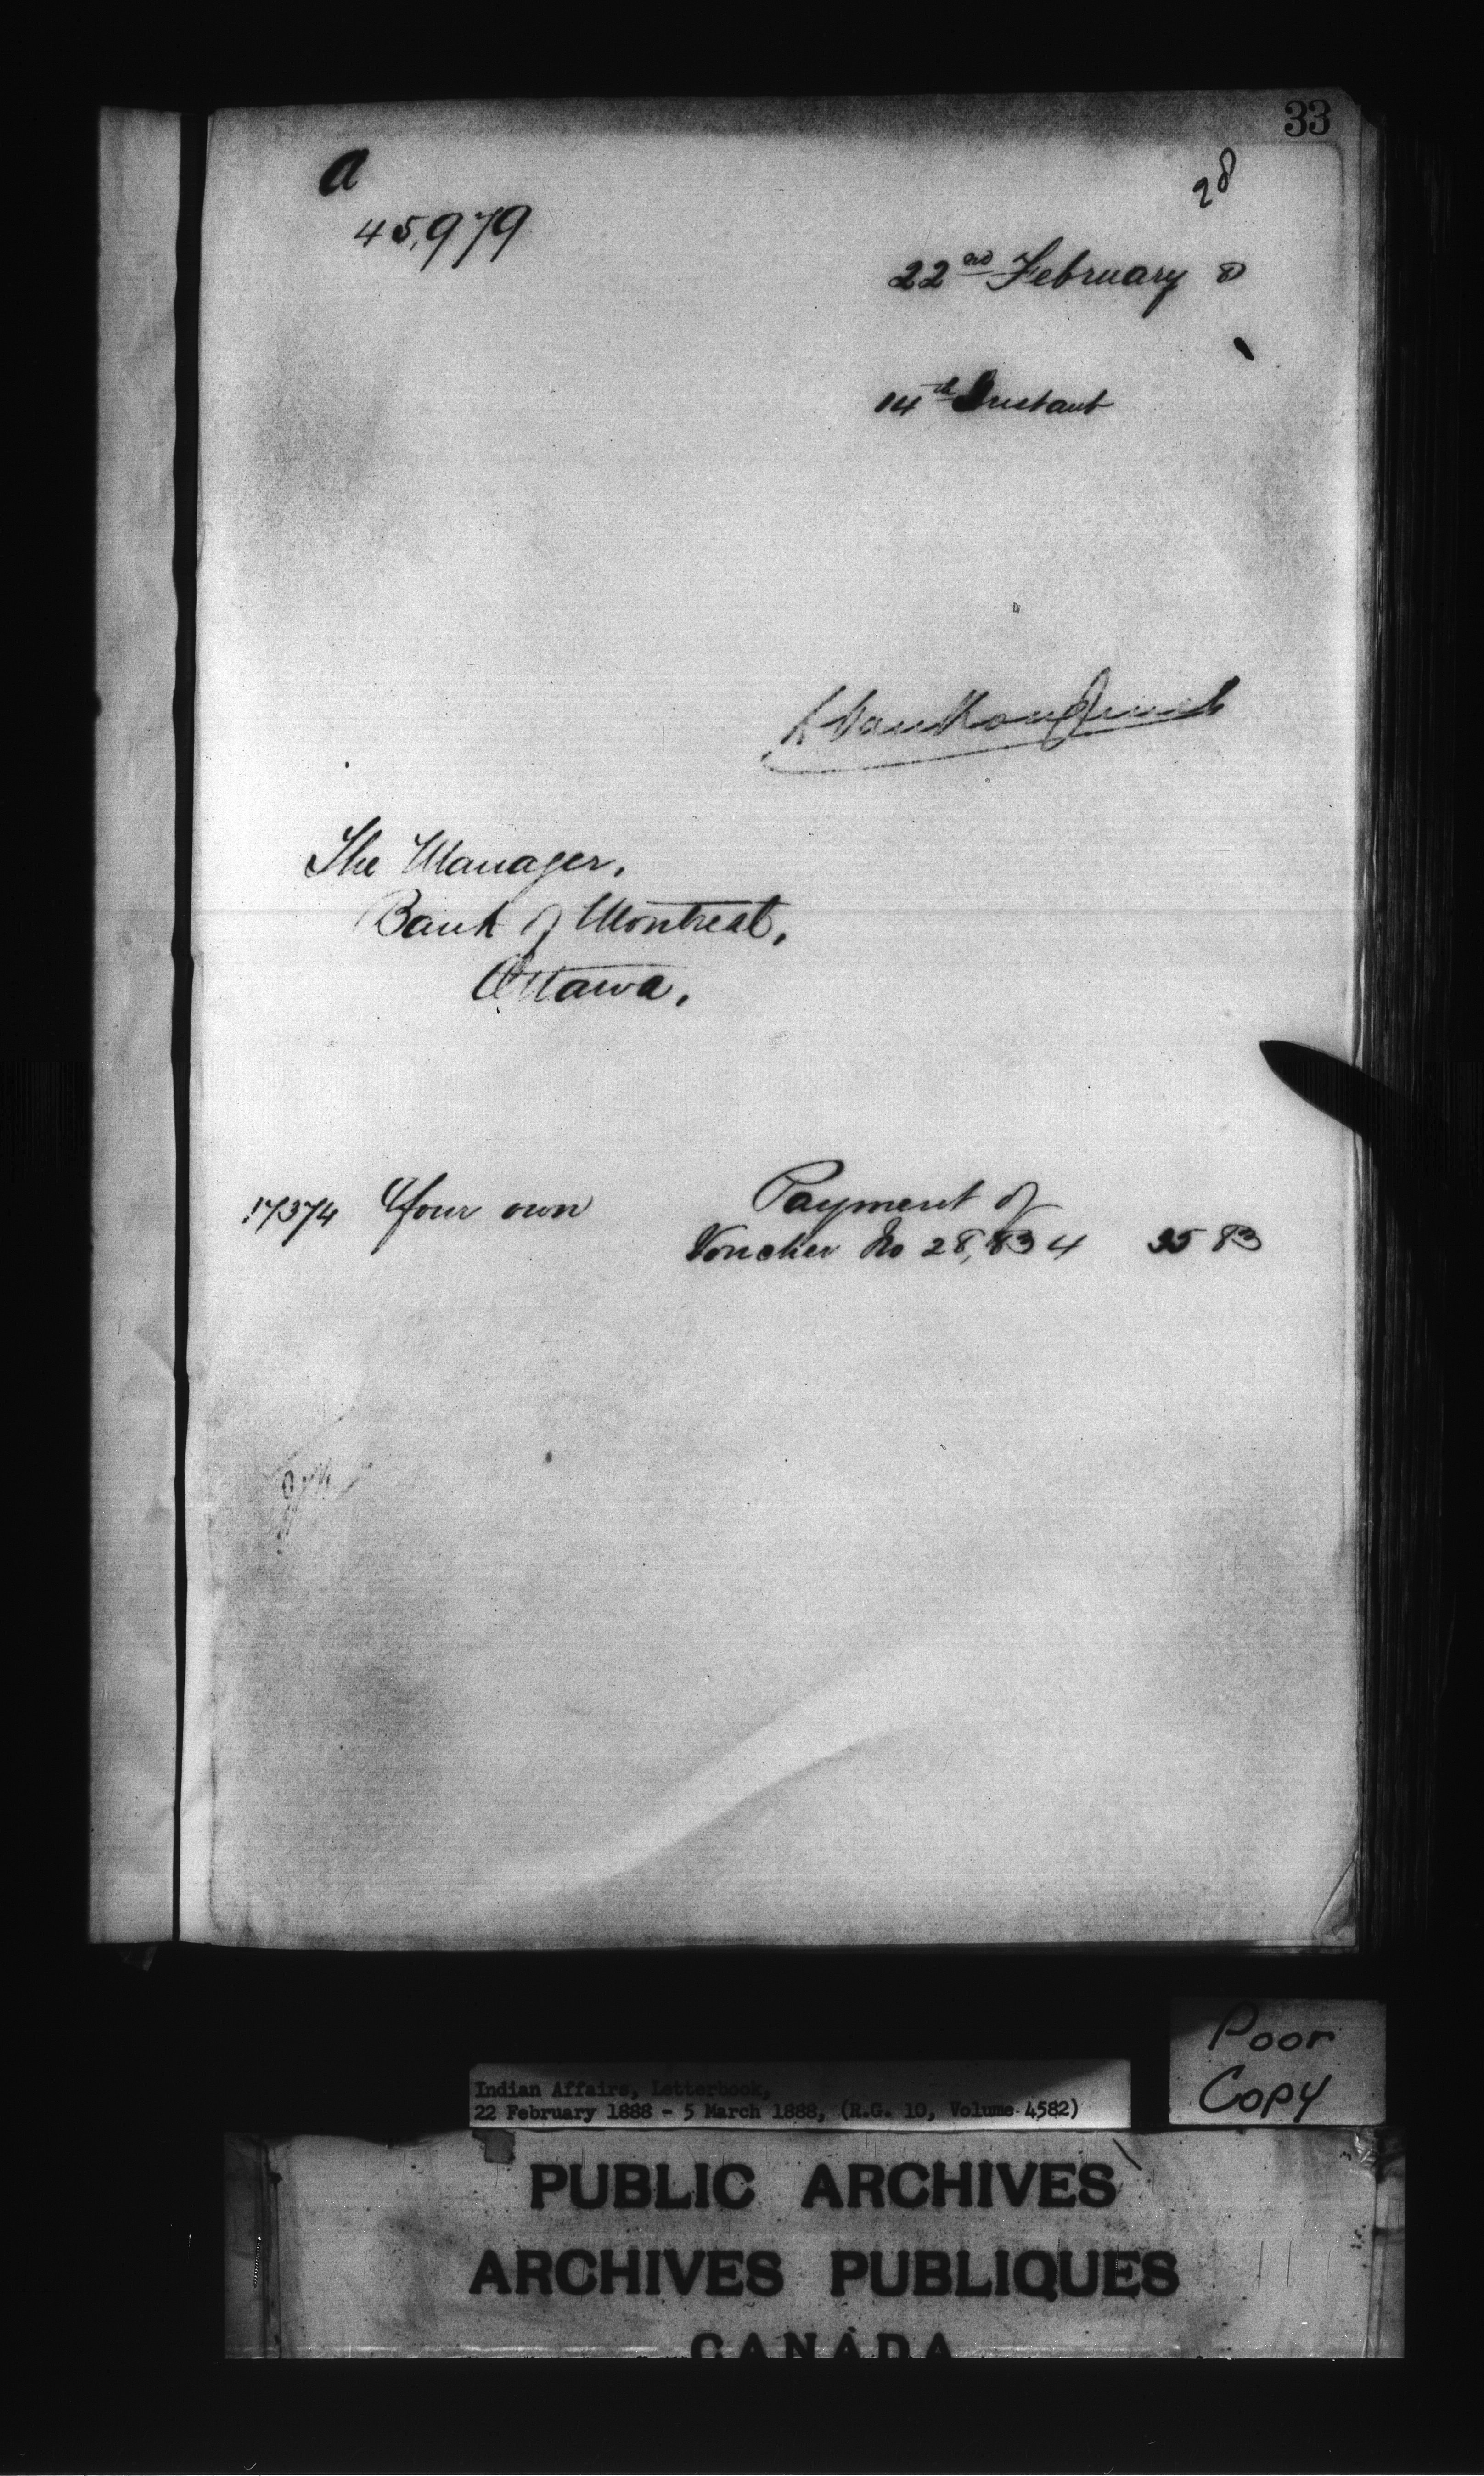 33
a
28
45,979
22nd February 8
14th Instant
L Vankoughnet
The Manager,
Bank of Montreal,
Ottawa,
17374 Your own Payment of
Voucher No 28,834 35 83
Poor
Copy
Indian Affairs, Letterbook,
22 February 1888 - 5 March 1888, (R.G. 10, Volume 4582)
PUBLIC ARCHIVES
ARCHIVES PUBLIQUES
CANADA